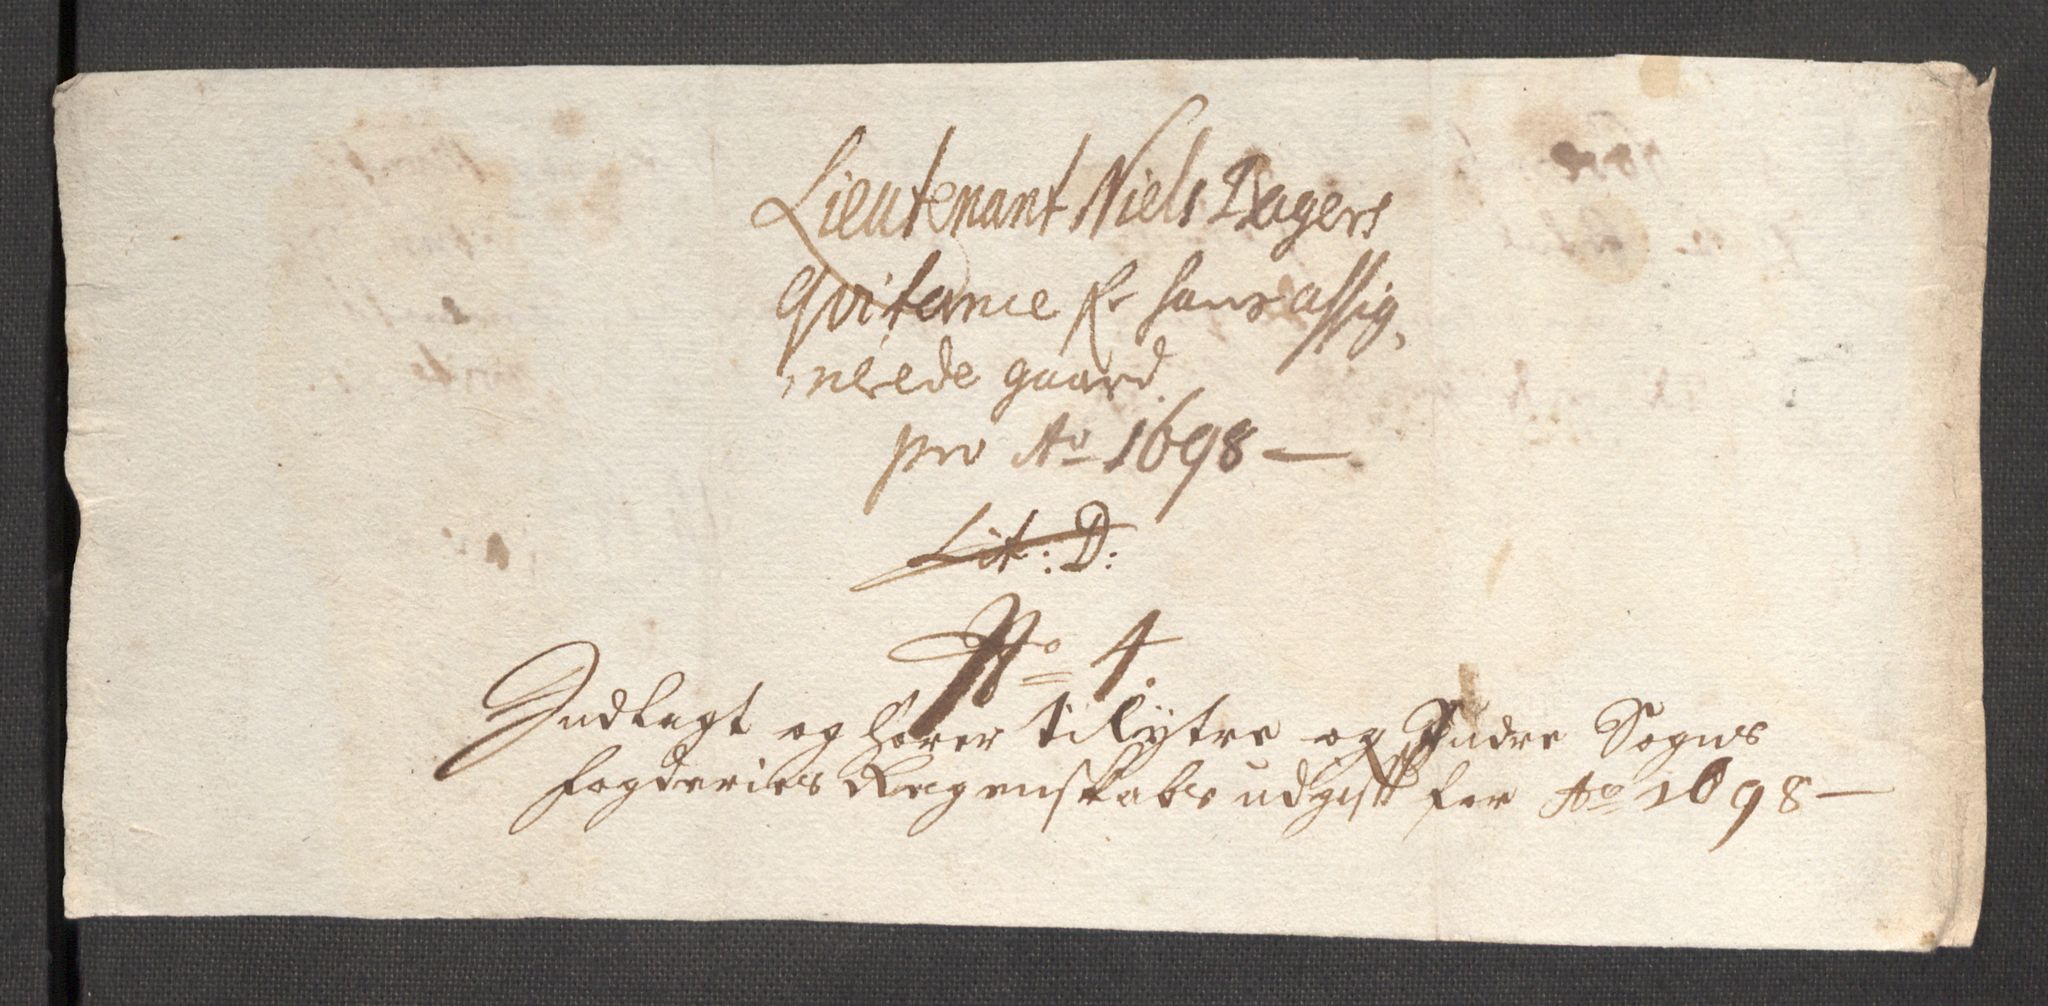 Lieutenant Niels Dagers
Qvitance for hans assig,
nerede gaard
pro Ao 1698 —
Lit: D:
No 4.
Indlagt og hører til Ytre og Indre Sogns
fogderies Regenskabs udgift for Ao 1698 —